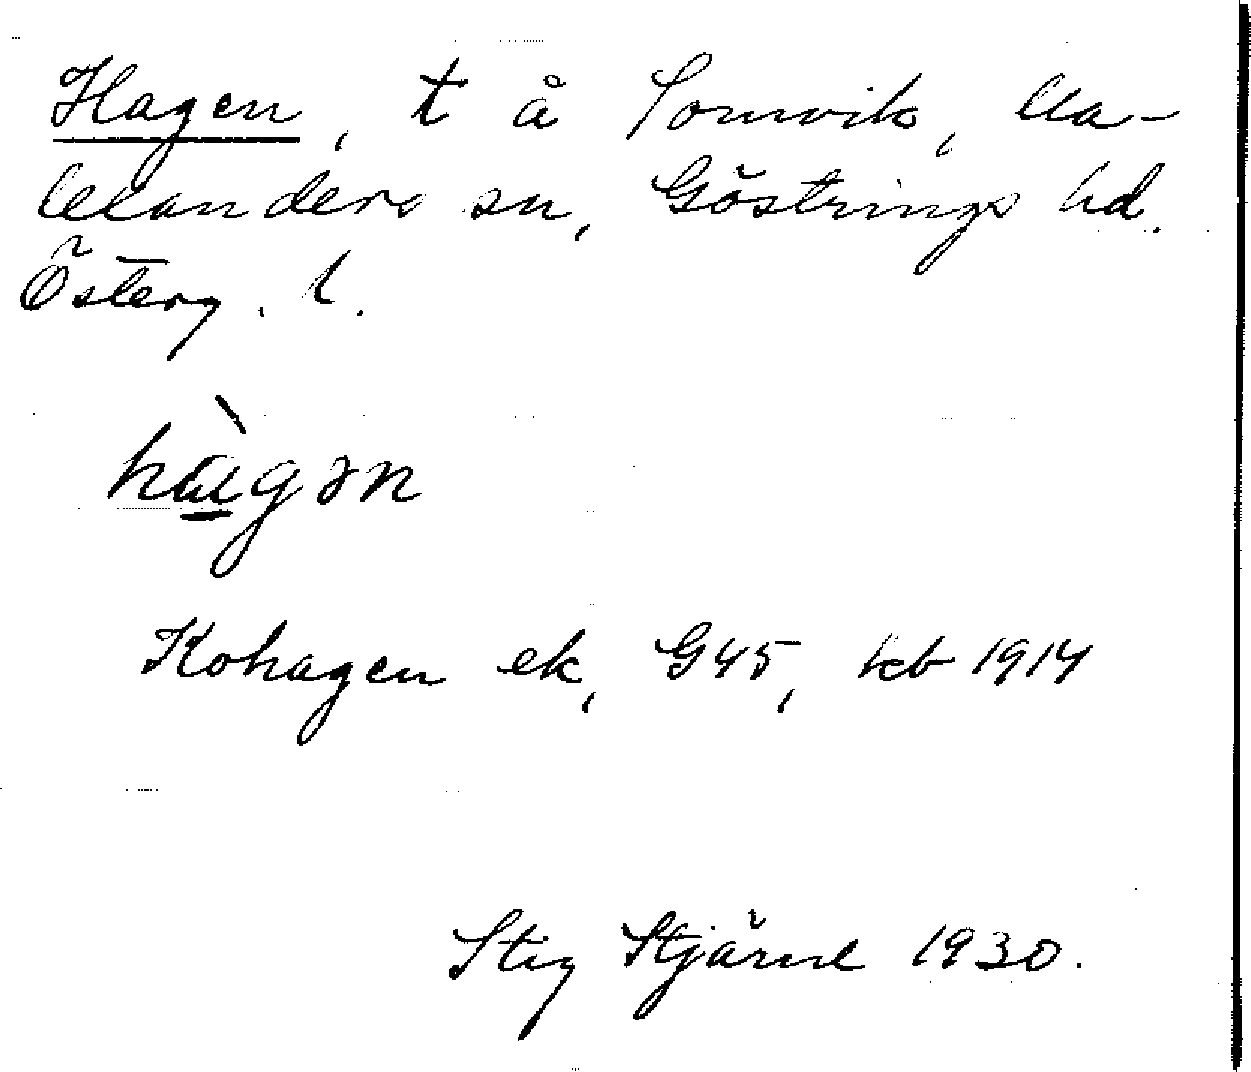 Hagen, t å Somvik, Ma-
lexanders sn, Göstrings hd.
Österg. l.
hàgən
Kohagen ek, G45, kb 1914
Stig Stjärne 1930.